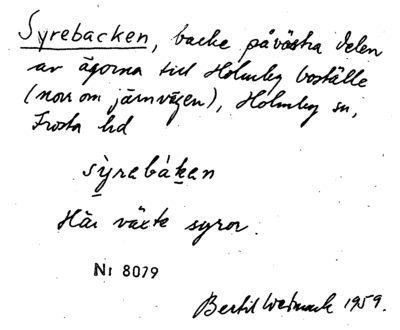 Syrebacken, backe på västra delen
av ägorna till Holmby boställe
(norr om järnvägen), Holmby sn,
Frosta hd
sỳrebáken
Här växte syror.
Nr 8079
Bertil Weimark 1959.